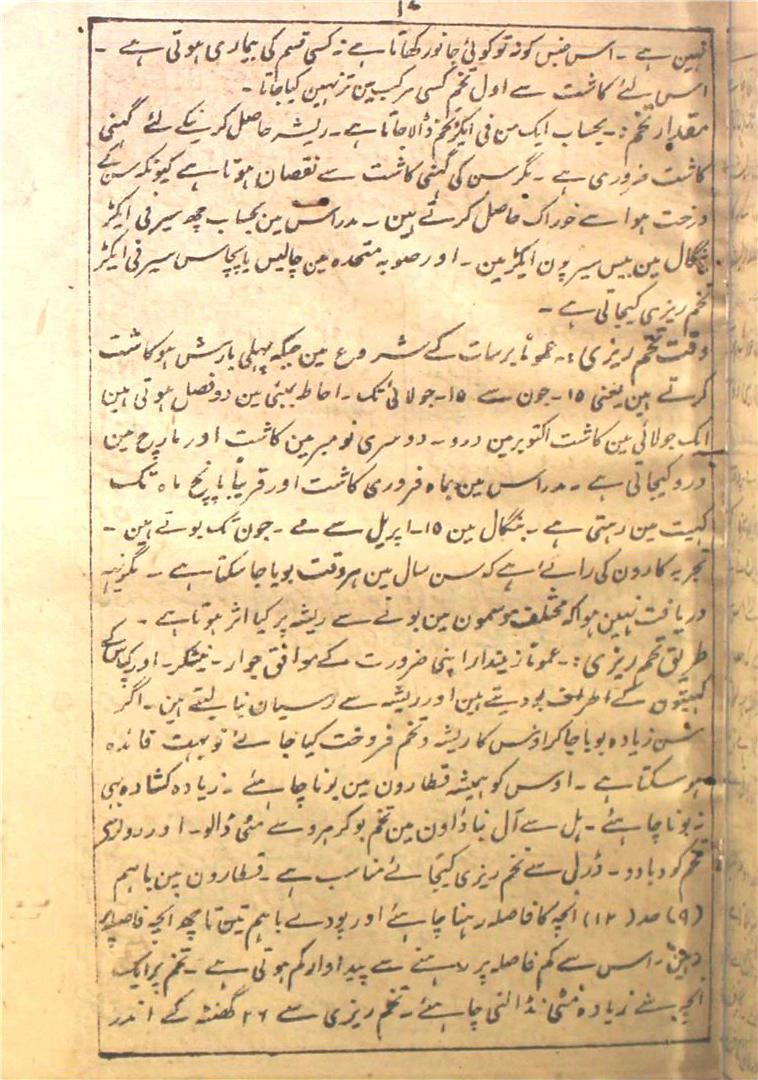 نہین ہے ۔ اس جنس کو نہ تو کوئی جانور کھاتا ہے نہ کسی قسم کی بیماری ہوتی ہے ۔
اس لئے کاشت سے اول تخم کسی مرکب مین تر نہین کیا جاتا ۔
مقدار تخم :۔ بحساب ایک من فی ایکڑ تخم ڈالا جاتا ہے ۔ ریشہ حاصل کرنیکے لئے گھنی
کاشت ضروری ہے ۔ مگر سن کی گھنی کاشت سے نقصان ہوتا ہے کیونکہ سن کے
درخت ہوا سے خوراک حاصل کرتے ہین ۔ مدراس مین بحساب چھ سیر فی ایکڑ
بنگال مین بیس سیر پون ایکڑ مین ۔ اور صوبہ متحدہ مین چالیس یا پچاس سیر فی ایکڑ
تخم ریزی کیجاتی ہے ۔
وقت تخم ریزی :۔ عموماً برسات کے شروع مین جبکہ پہلی بارش ہو کاشت
کرتے ہین یعنی ۱۵ ۔ جون سے ۱۵ ۔ جولائی تک ۔ احاطہ بمبئی مین دو فصل ہوتی ہین
ایک جولائی مین کاشت اکتوبر مین درو ۔ دوسری نومبر مین کاشت اور مارچ مین
درو کیجاتی ہے ۔ مدراس مین بماہ فروری کاشت اور قریباً پانچ ماہ تک
کہیت مین رہتی ہے ۔ بنگال مین ۱۵ ۔ اپریل سے مے ۔ جون تک بوتے ہین ۔
تجربہ کارون کی رائے ہے کہ سن سال مین ہر وقت بویا جا سکتا ہے ۔ مگر یہ
دریافت نہین ہوا کہ مختلف موسمون مین بونے سے ریشہ پر کیا اثر ہوتا ہے ۔
طریق تخم ریزی :۔ عموماً زمیندار اپنی ضرورت کے موافق جوار ۔ نیشکر ۔ اور کپاس کے
کہیتون کے اطراف بو دیتے ہین اور ریشہ سے رسیان بنا لیتے ہین ۔ اگر
سن زیادہ بویا جا کر اوس کا ریشہ و تخم فروخت کیا جائے تو بہت فائدہ
ہو سکتا ہے ۔ اوس کو ہمیشہ قطارون مین بونا چاہئے ۔ زیادہ کشادہ بھی
نہ بونا چاہئے ۔ ہل سے آل بنا داون مین تخم بو کر ہرو سے مٹی ڈالو ۔ اور رولر سے
تخم کو دبا دو ۔ ڈرل سے تخم ریزی کیجائے مناسب ہے ۔ قطارون مین باہم
(۹) صد (۱۲) انچہ کا فاصلہ رہنا چاہئے اور پودے باہم تین تا چھ انچہ فاصلہ پر
رہین ۔ اس سے کم فاصلہ پر رہنے سے پیداوار کم ہوتی ہے ۔ تخم پر ایک
انچہ سے زیادہ مٹی نہ ڈالنی چاہئے ۔ تخم ریزی سے ۲۶ گھنٹہ کے اندر